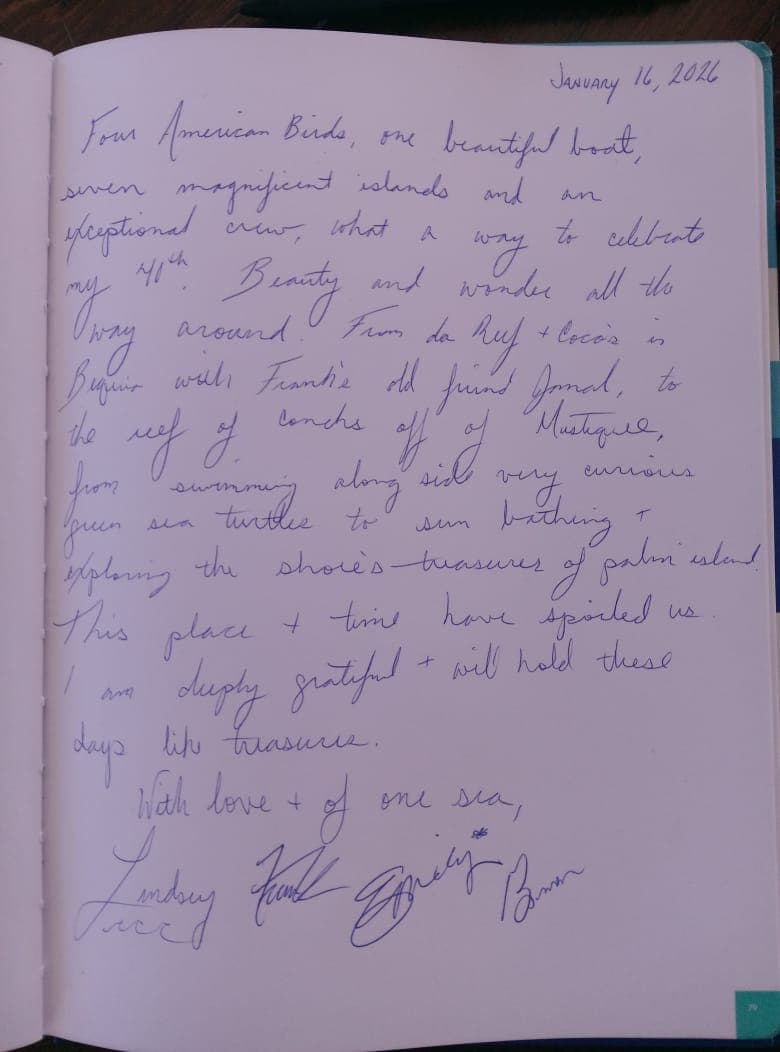 January 16, 2026
Four American Birds, one beautiful boat,
seven magnificent islands and an
exceptional crew, what a way to celebrate
my 40th. Beauty and wonder all the
way around. From da Reef + Coco's in
Bequia with Frank's old friend Jamal, to
the reef of conchs off of Mustique,
from swimming along side very curious
green sea turtles to sun bathing +
exploring the shore's treasures of palm island.
This place + time have spoiled us.
I am deeply grateful + will hold these
days like treasures.
With love + of one sea,
Lindsey Frank Emily
79